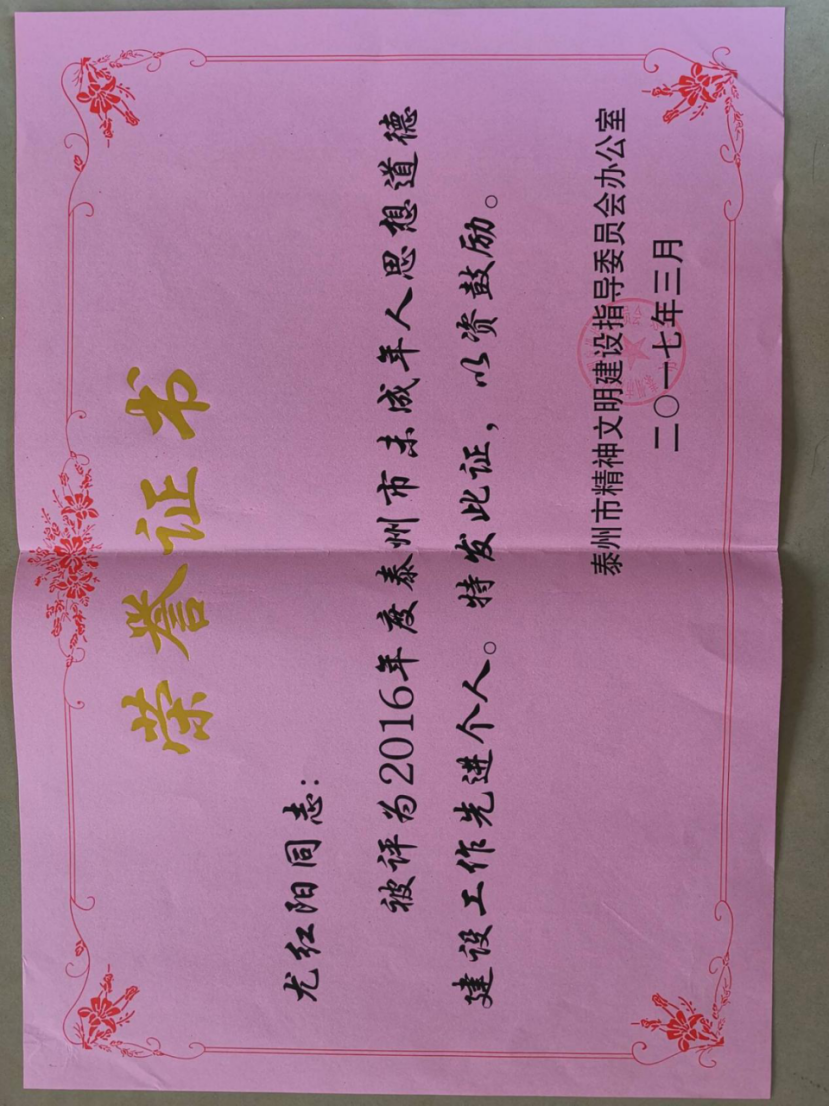 荣誉证书
尤红阳同志：
被评为2016年度泰州市未成年人思想道德
建设工作先进个人。特发此证，以资鼓励。
泰州市精神文明建设指导委员会办公室
二〇一七年三月